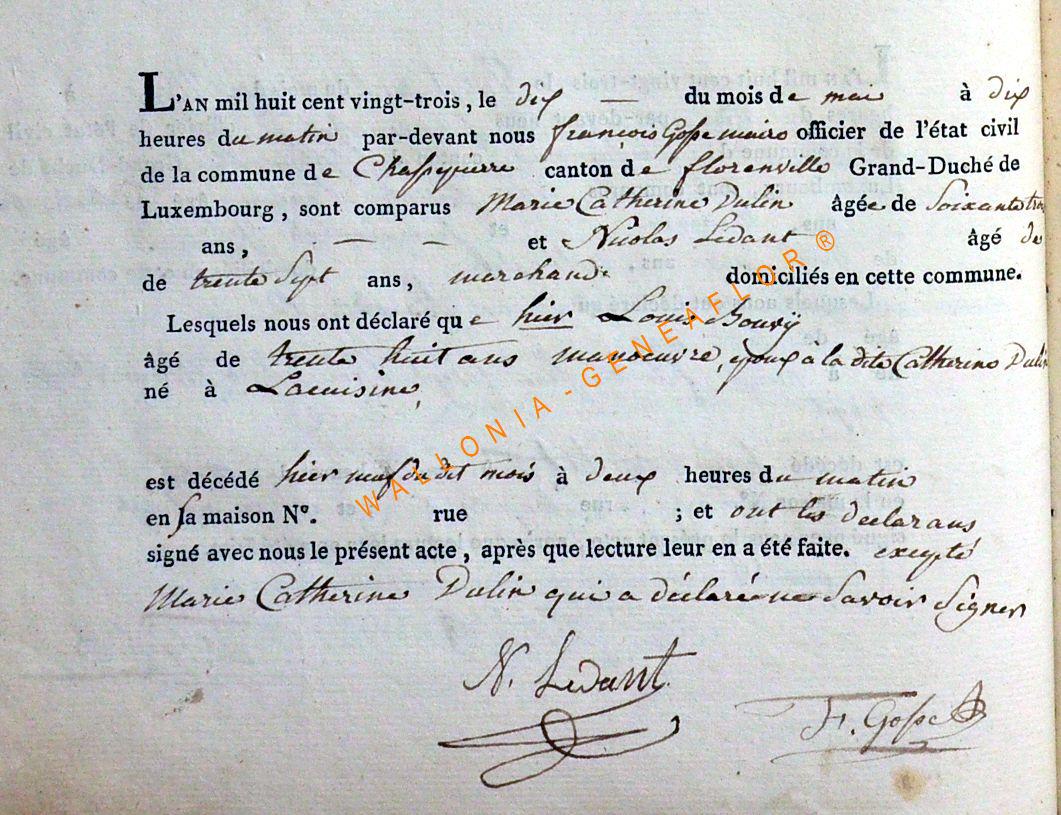 L'AN mil huit cent vingt-trois, le dix — du mois de mai à dix
heures du matin par-devant nous françois Gosse maire officier de l'état civil
de la commune de Chassepierre canton de florenville Grand-Duché de
Luxembourg, sont comparus Marie Catherine Dulin âgée de Soixante trois
ans, — — et Nicolas Ledant âgé de
de trente Sept ans, marchand domiciliés en cette commune.
Lesquels nous ont déclaré que hier Louis Gouvÿ
âgé de trente huit ans manoeuvre, epoux a la dite Catherine Dulin
né à Lacuisine,
est décédé hier neuf du dit mois à deux heures du matin
en sa maison N°. rue ; et ont les déclarans
signé avec nous le présent acte, après que lecture leur en a été faite. excepté
Marie Catherine Dulin qui a déclaré ne Savoir Signer
N. Ledant
F. Gosse
WALLONIA - GENEAFLOR ®